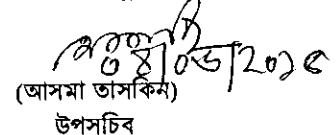 ০৪/০৬/২০১৫
(আসমা তাসকিন)
উপসচিব